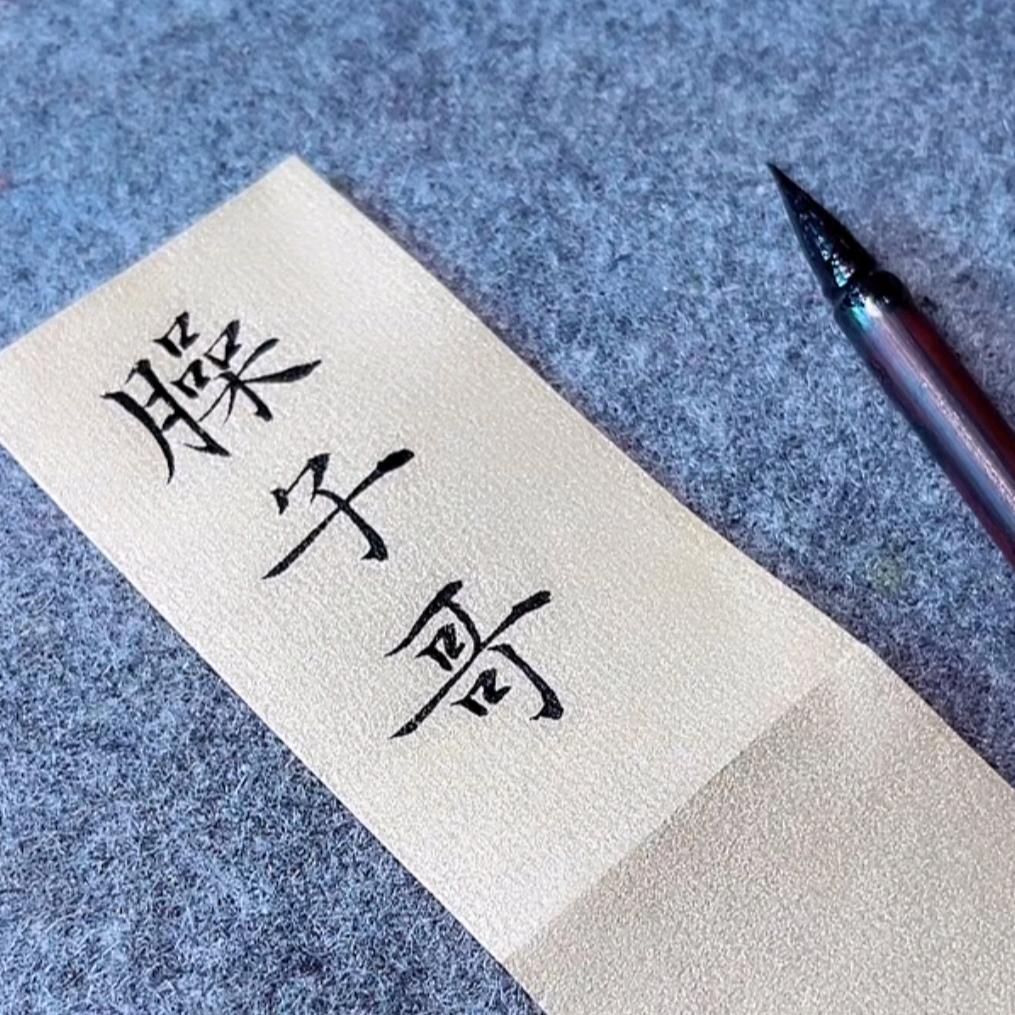 臊子哥